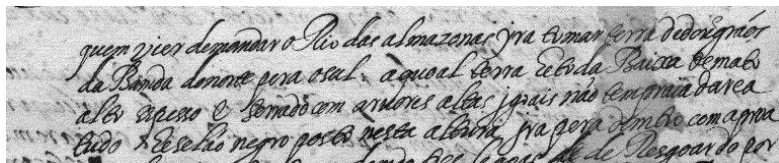 quem vier demandar o Rio das almazonas jra tomar terra de dous graos
da Banda do norte pera o sul. a quoal terra he toda Baixa de mato
alto espeso e serrado com aruores altas jguais não tem praia darea
tudo he selão negro posto nesta altura jra pera dentro com a proa
legoas de de Resgoardo por